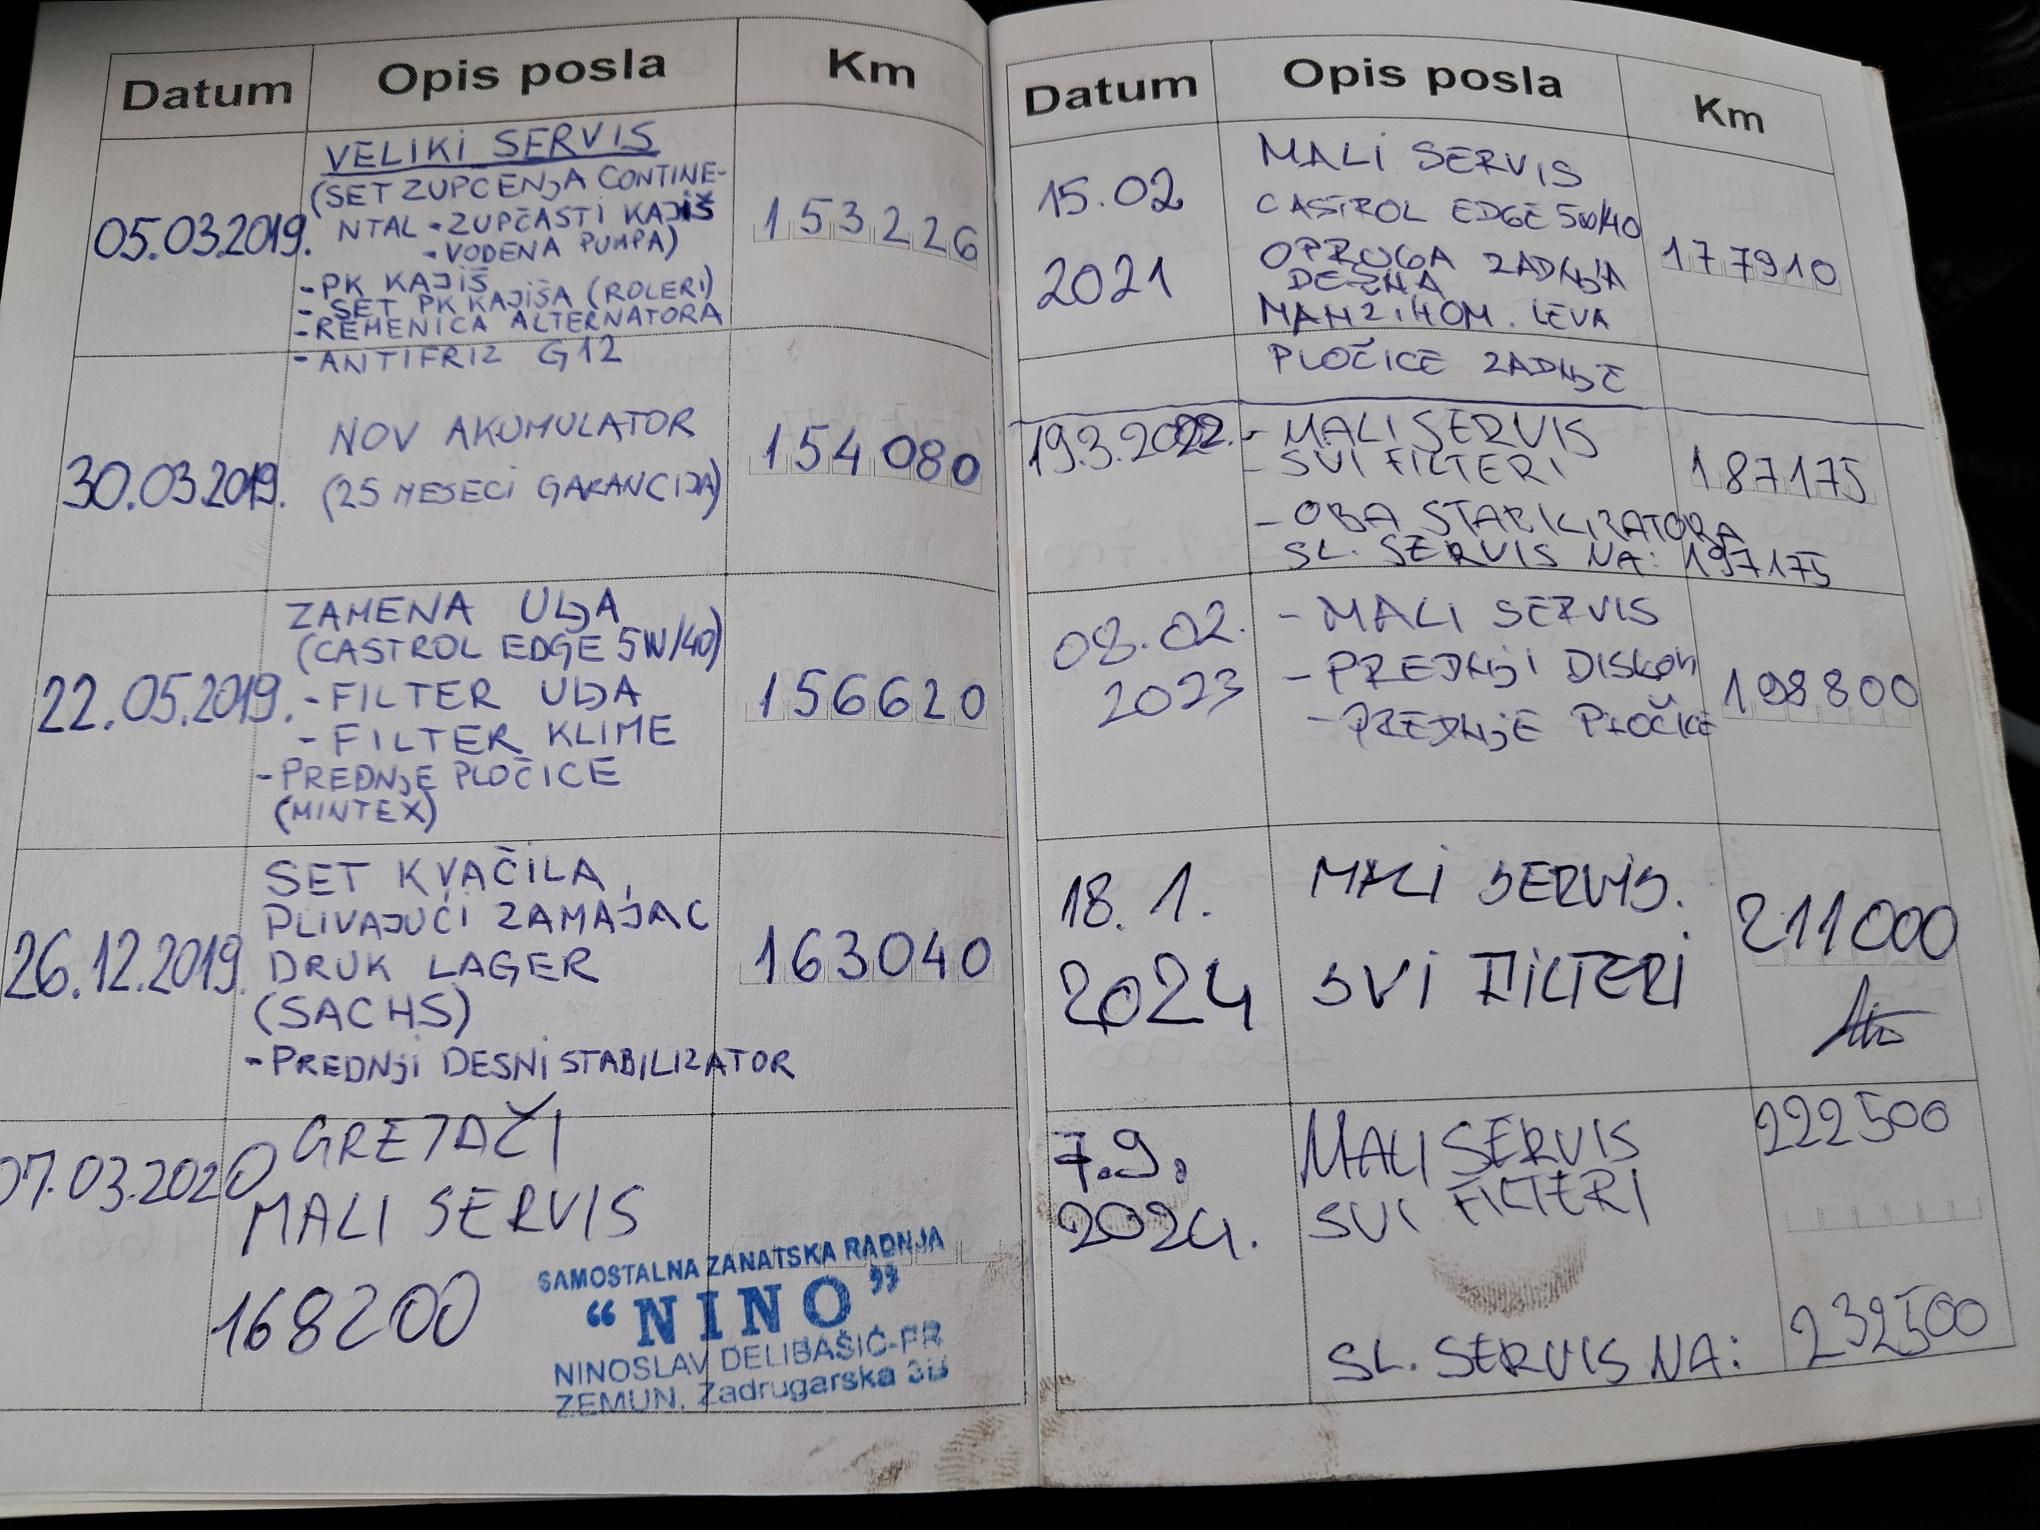 Datum Opis posla Km
05.03.2019. VELIKI SERVIS 153226
(SET ZUPČENJA CONTINE-
NTAL - ZUPČASTI KAJIŠ
- VODENA PUMPA)
- PK KAJIŠ
- SET PK KAJIŠA (ROLERI)
- REMENICA ALTERNATORA
- ANTIFRIZ G12
30.03.2019. NOV AKUMULATOR 154080
(25 MESECI GARANCIJA)
22.05.2019. ZAMENA ULJA 156620
(CASTROL EDGE 5W/40)
- FILTER ULJA
- FILTER KLIME
- PREDNJE PLOČICE
(MINTEX)
26.12.2019. SET KVAČILA, 163040
PLIVAJUĆI ZAMAJAC
DRUK LAGER
(SACHS)
- PREDNJI DESNI STABILIZATOR
07.03.2020 GREJAČI
MALI SERVIS
168200
SAMOSTALNA ZANATSKA RADNJA
“NINO”
NINOSLAV DELIBAŠIĆ-PR
ZEMUN, Zadrugarska 3B
Datum Opis posla Km
15.02 2021 MALI SERVIS 177910
CASTROL EDGE 5W/40
OPRUGA ZADNJA
DESNA
MANŽ. HOM. LEVA
PLOČICE ZADNJE
19.3.2022. - MALI SERVIS 187175
- SVI FILTERI
- OBA STABILIZATORA
SL. SERVIS NA: 197175
08.02. 2023 - MALI SERVIS 198800
- PREDNJI DISKOVI
- PREDNJE PLOČICE
18. 1. 2024 MALI SERVIS. 211000
SVI FILTERI
7.9. 2024. MALI SERVIS 222500
SVI FILTERI
SL. SERVIS NA: 232500